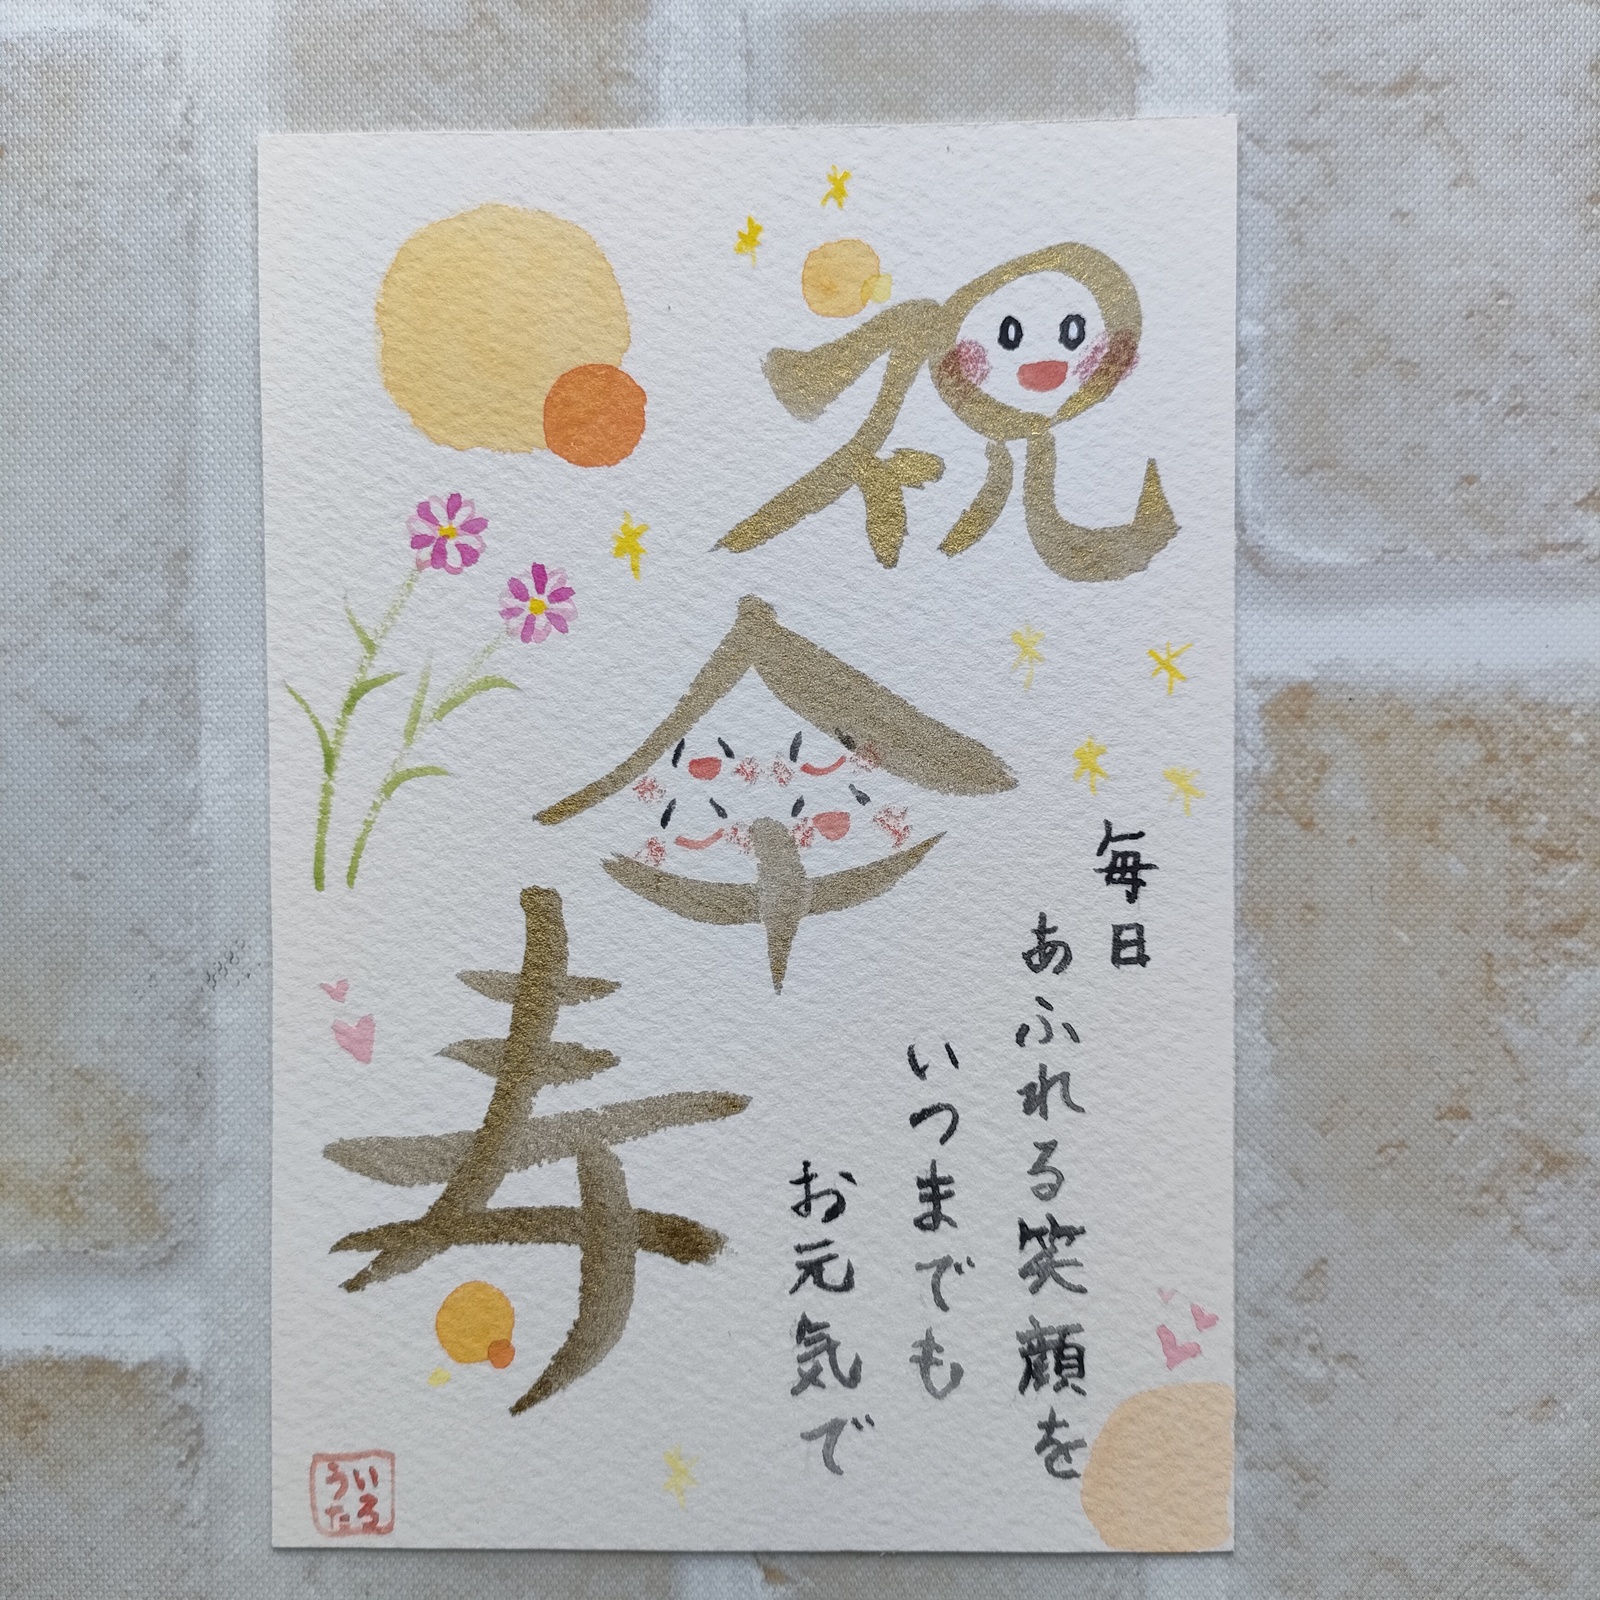 祝
傘
寿
毎日
あふれる笑顔を
いつまでも
お元気で
いろ
うた